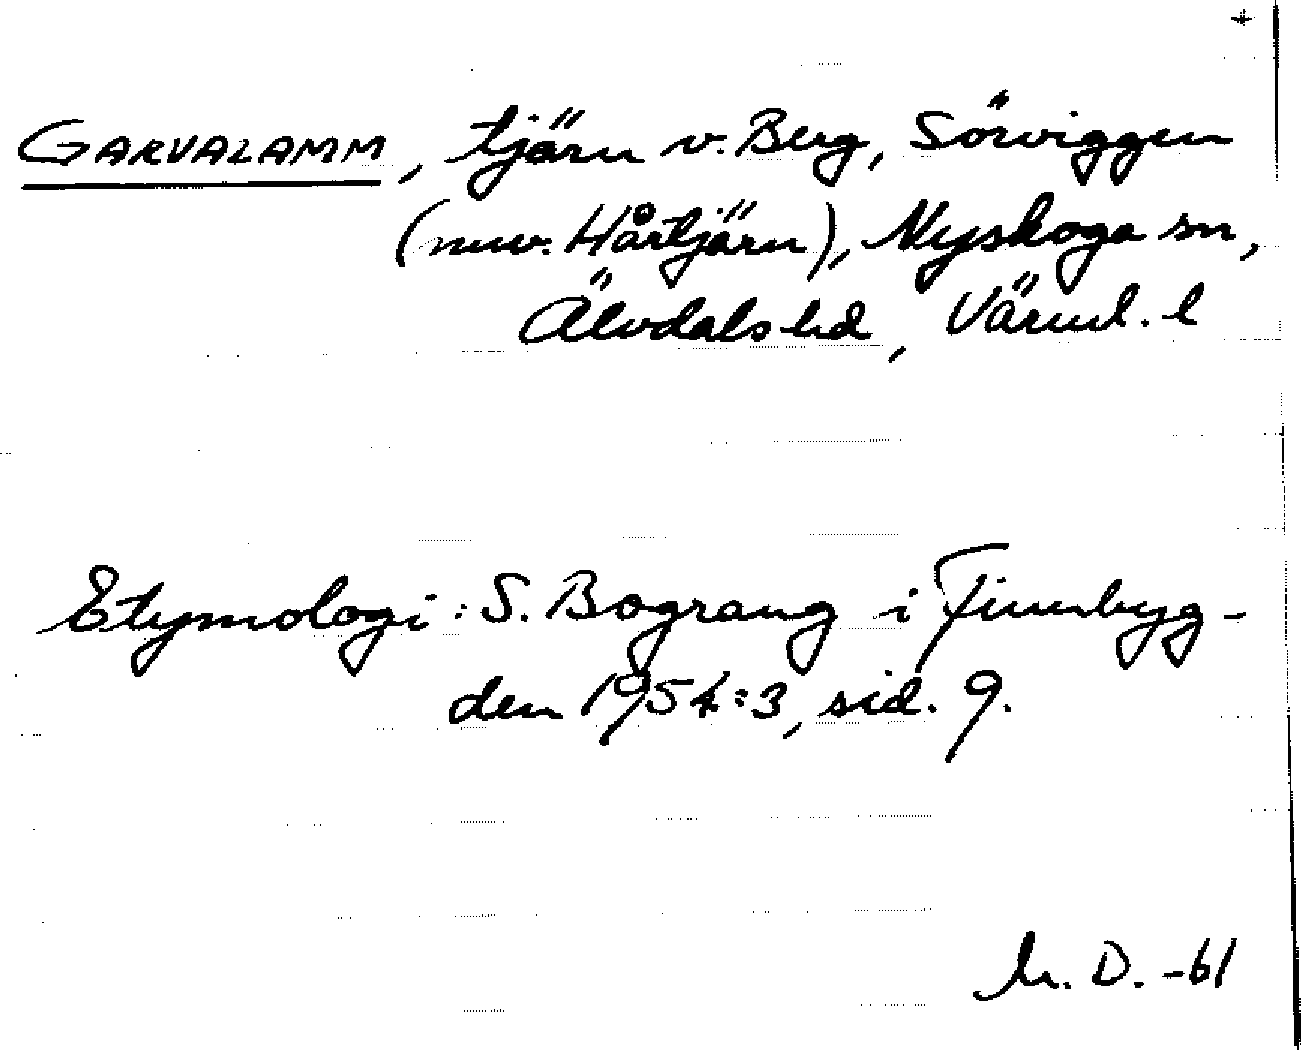 +
GARVALAMM, tjärn v. Berg, Sörviggen
(nuv. Hårtjärn), Nyskoga sn,
Älvdals hd, Värml. l
Etymologi: S. Bograng i Finnbyg-
den 1954:3, sid. 9.
M. D. -61